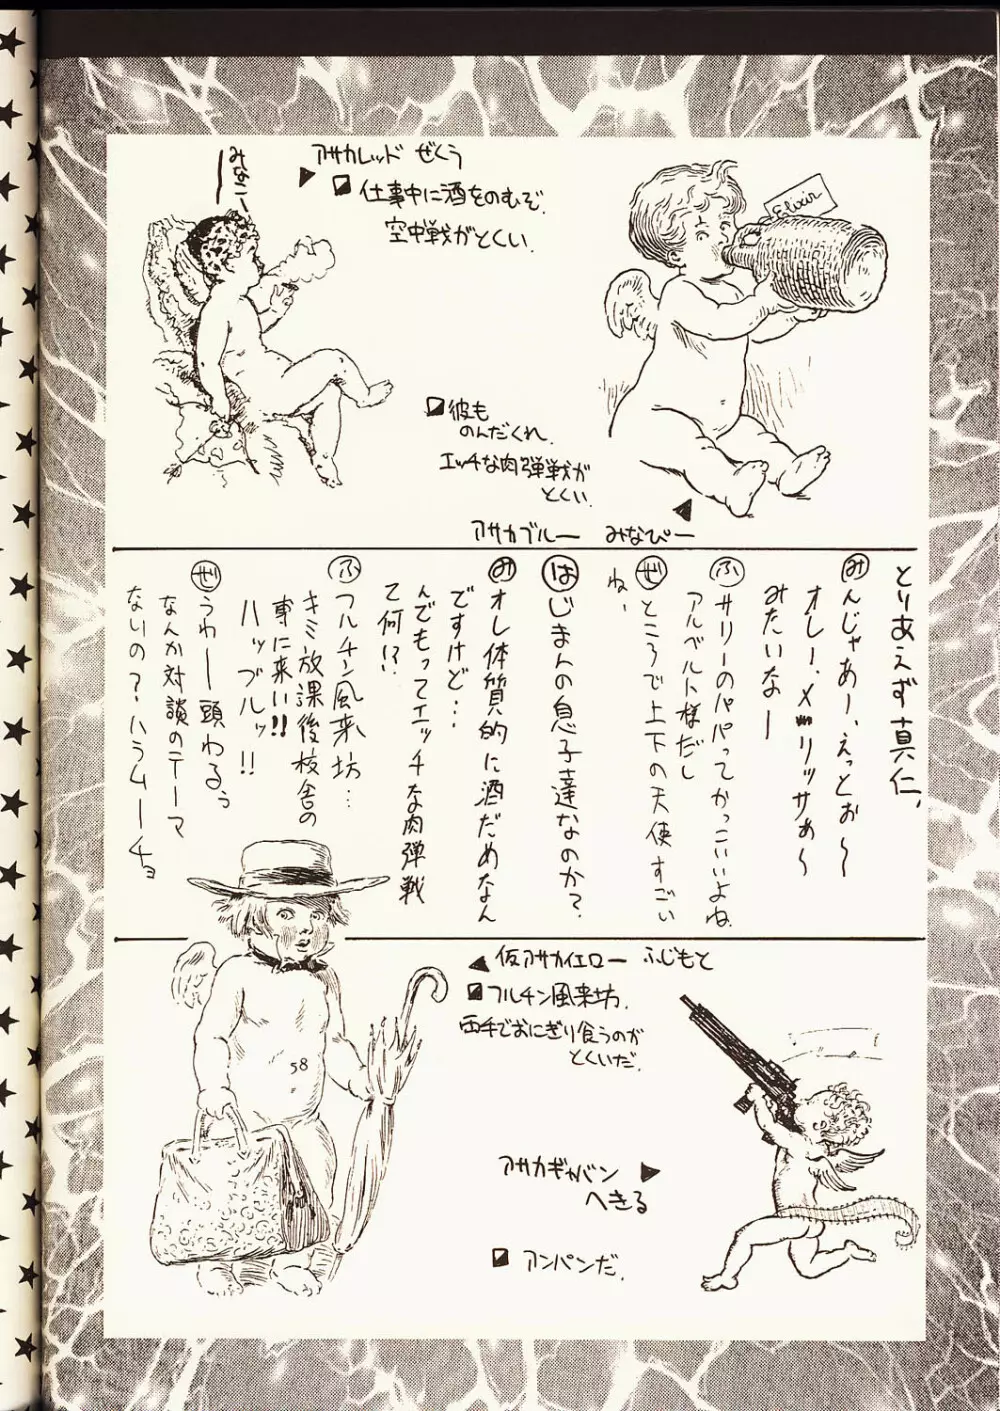 みなこー
アサカレッド ぜくう
仕事中に酒をのむぞ.
空中戦がとくい.
Elixir
彼も
のんだくれ.
エッチな肉弾戦が
とくい.
アサカブルー みなぴー
とりあえず真仁、
みんじゃあー、えっとぉ〜
オレー、メーリッサぁ〜
みたいなー
ふ サリーのパパってかっこいいよね.
アルベルト様だし
ぜ ところで上下の天使すごい
ね、
はじまんの息子達なのか?
み オレ体質的に酒だめなん
ですけど…
んでもってエッチな肉弾戦
て何!?
ふ フルチン風来坊…
キミ放課後校舎の
事に来い!!
ハッブルッ!!
ぜ うわー頭わるぅ
なんか対談のテーマ
ないの?ハラムーチョ
58
仮アサカイエロー ふじもと
フルチン風来坊.
両手でおにぎり食うのが
とくいだ.
アサカギャバン
へきる
アンパンだ.